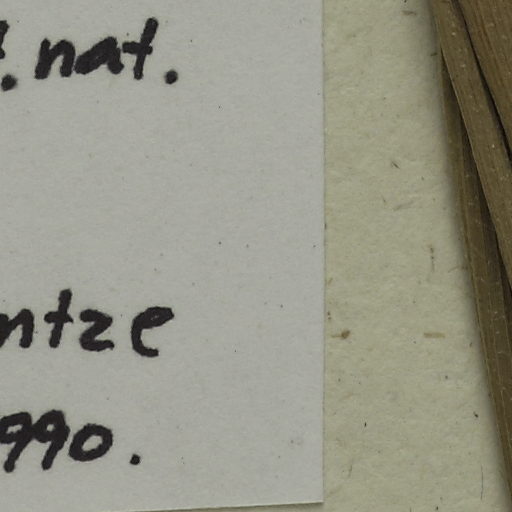 . nat.
ntze
990.